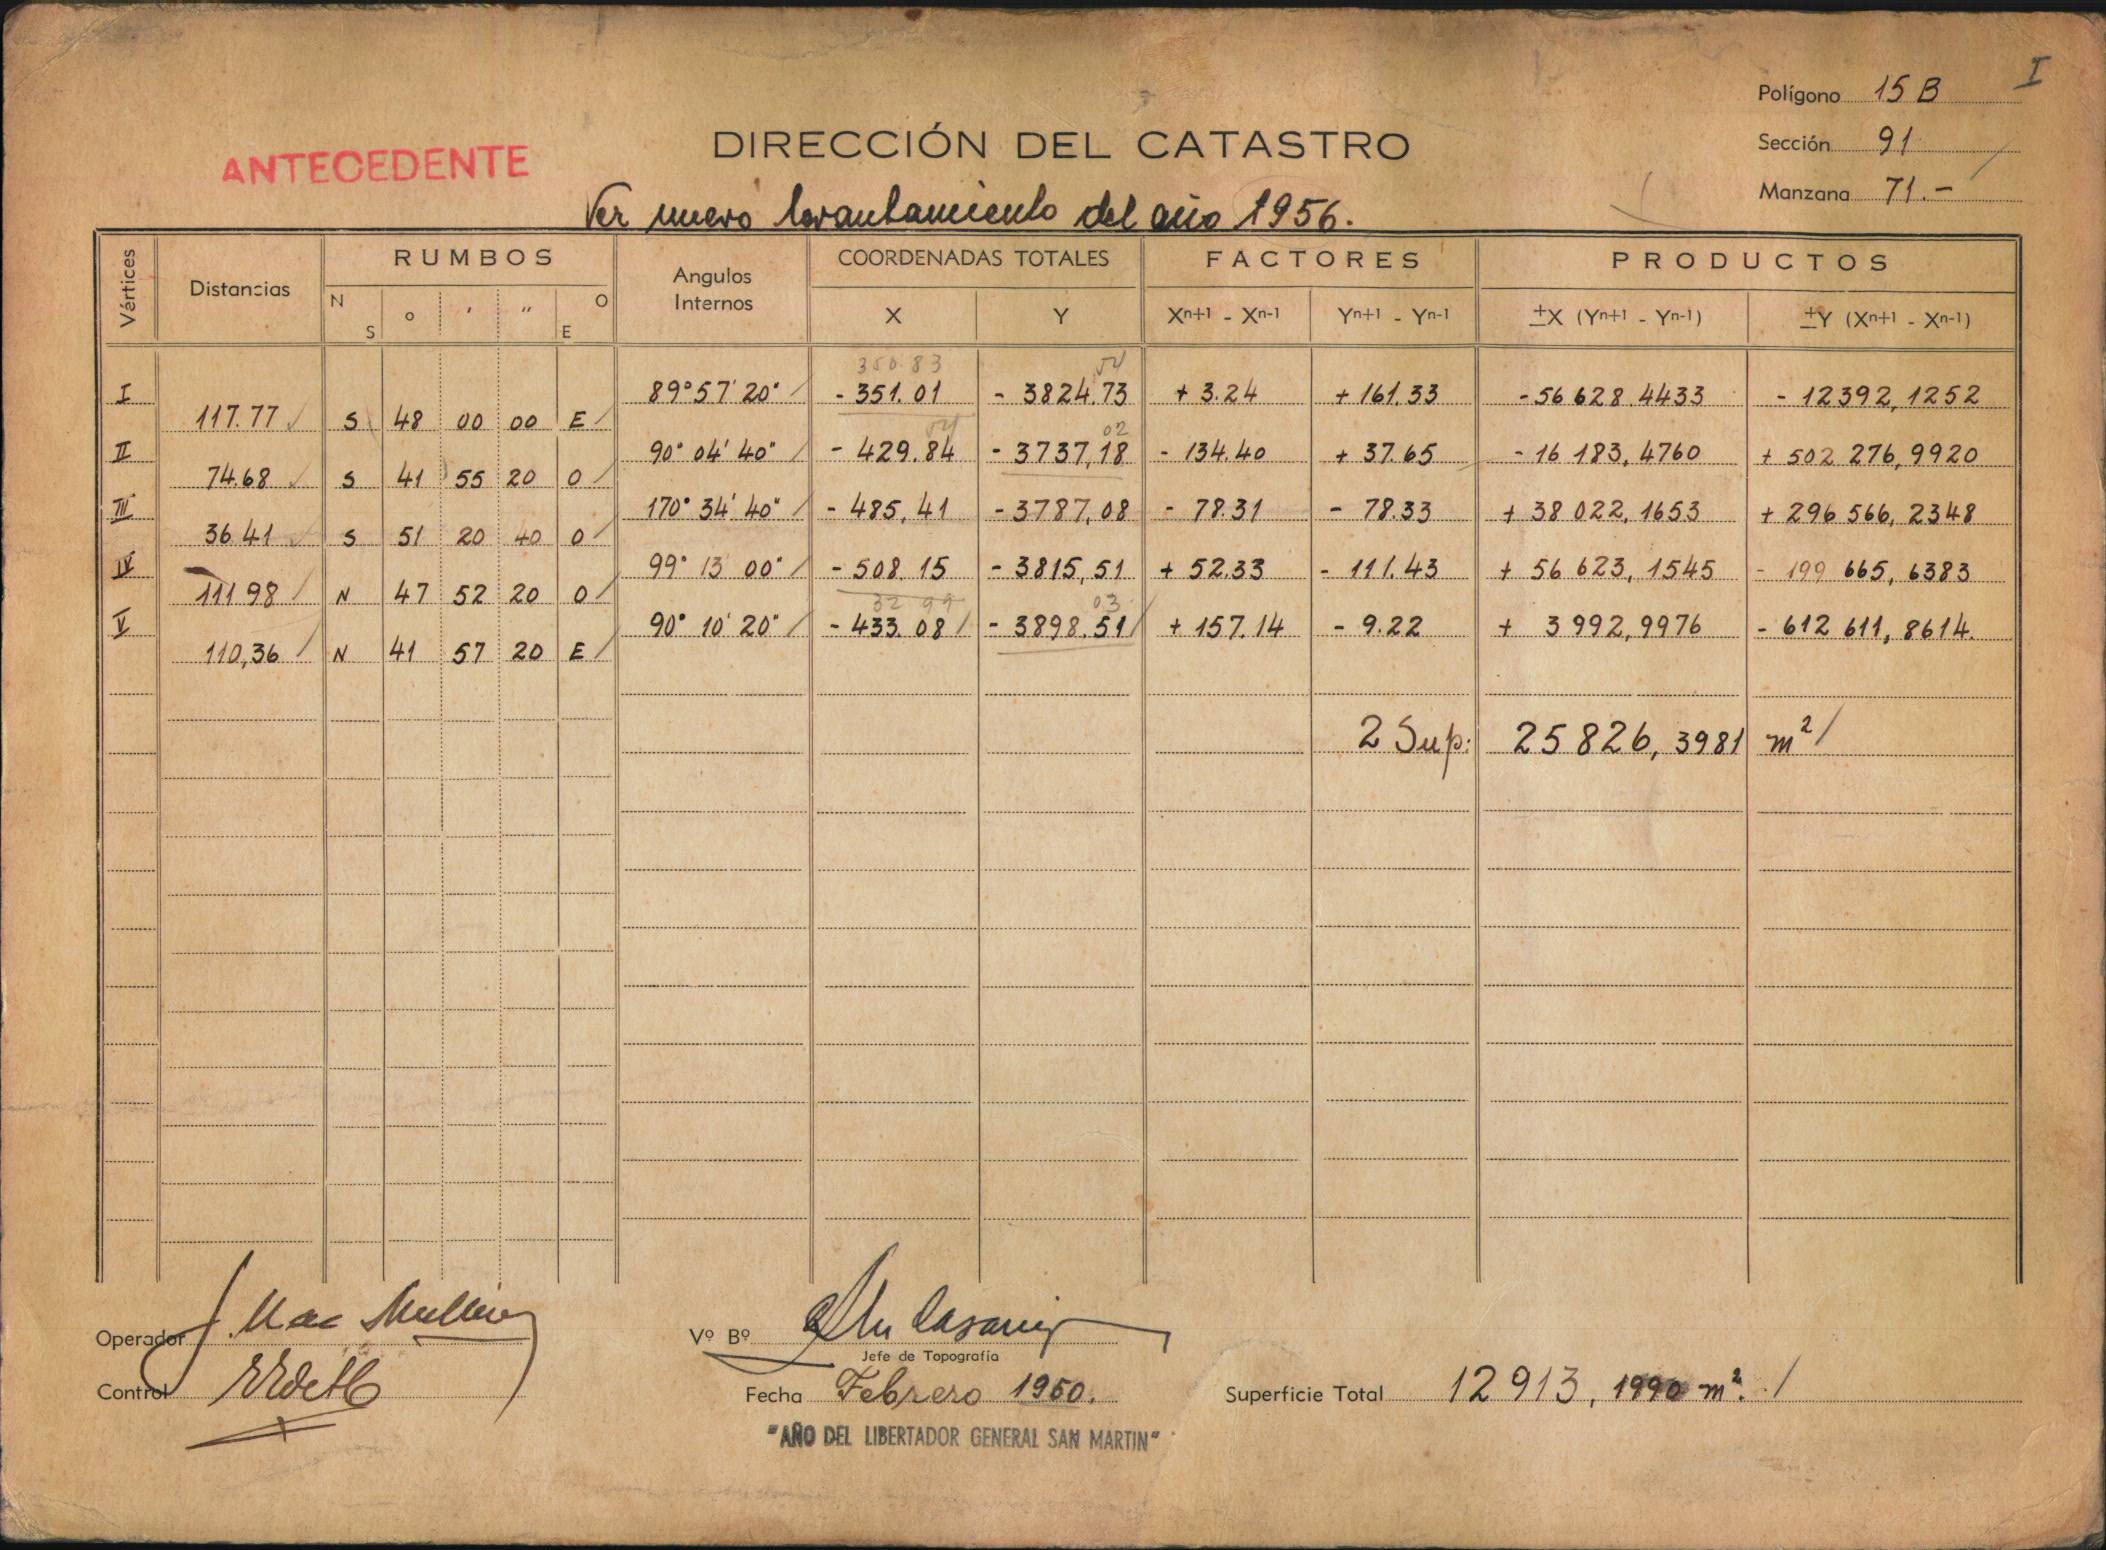 I
Polígono 15 B
DIRECCIÓN DEL CATASTRO
Sección 91
ANTECEDENTE
Manzana 71.-
Ver nuevo levantamiento del año 1956.
Vértices Distancias RUMBOS Angulos Internos COORDENADAS TOTALES FACTORES PRODUCTOS
N S o ' " O E X Y Xn+1 - Xn-1 Yn+1 - Yn-1 ±X (Yn+1 - Yn-1) ±Y (Xn+1 - Xn-1)
350.83 54
I 89° 57' 20" - 351.01 - 3824.73 + 3.24 + 161.33 - 56 628.4433 - 12392,1252
117.77 S 48 00 00 E
54 02
II 90° 04' 40" - 429.84 - 3737,18 - 134.40 + 37.65 - 16 183,4760 + 502 276,9920
74.68 S 41 55 20 O
III 170° 34' 40" - 485,41 - 3787,08 - 78.31 - 78.33 + 38 022,1653 + 296 566,2348
36.41 S 51 20 40 O
IV 99° 13' 00" - 508.15 - 3815,51 + 52.33 - 111.43 + 56 623,1545 - 199 665,6383
111 98 N 47 52 20 O
32 99 03
V 90° 10' 20" - 433.08 - 3898.51 + 157.14 - 9.22 + 3 992,9976 - 612 611,8614.
110,36 N 41 57 20 E
2 Sup: 25826,3981 m²
Operador J. Mac
Vº Bº
Jefe de Topografía
Control
Fecha Febrero 1950.
Superficie Total 12913,1990 m².
"AÑO DEL LIBERTADOR GENERAL SAN MARTIN"